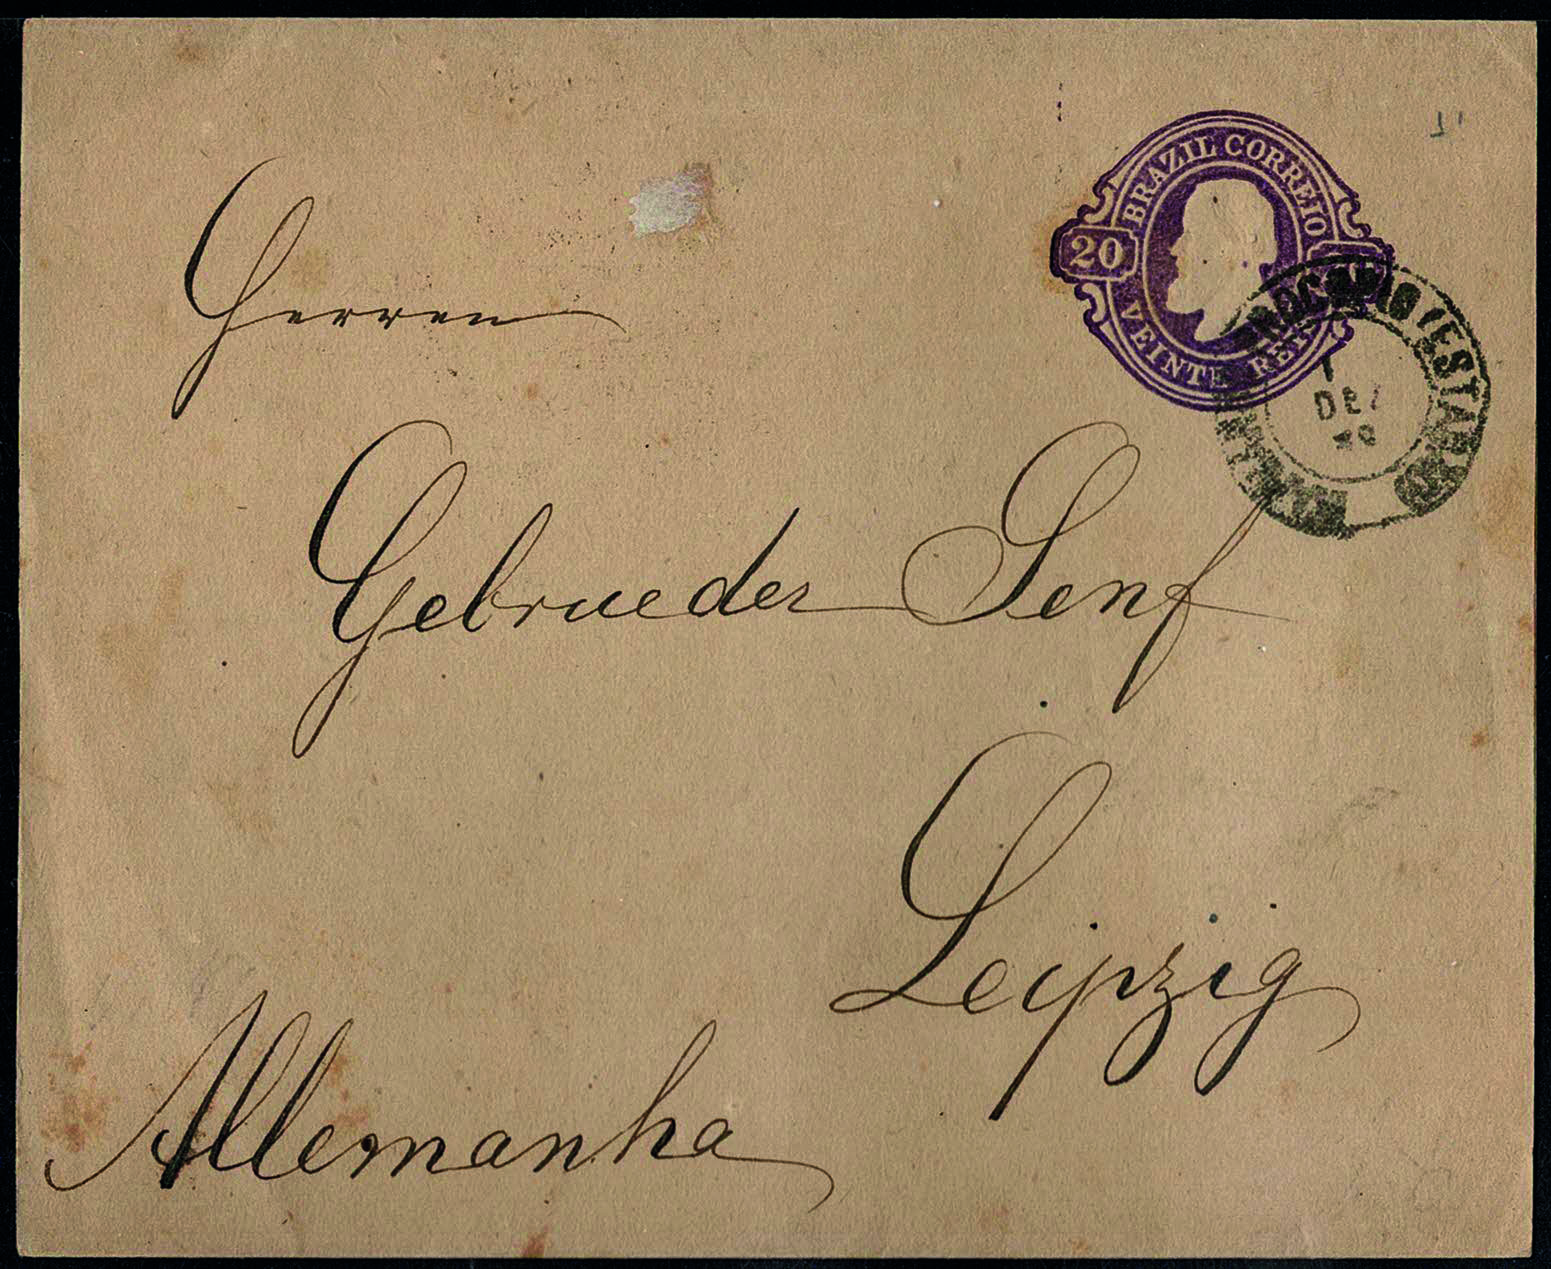 BRAZIL CORREIO
20
VEINTE REIS
DEZ
Herren
Gebrueder Senf
Leipzig
Allemanha